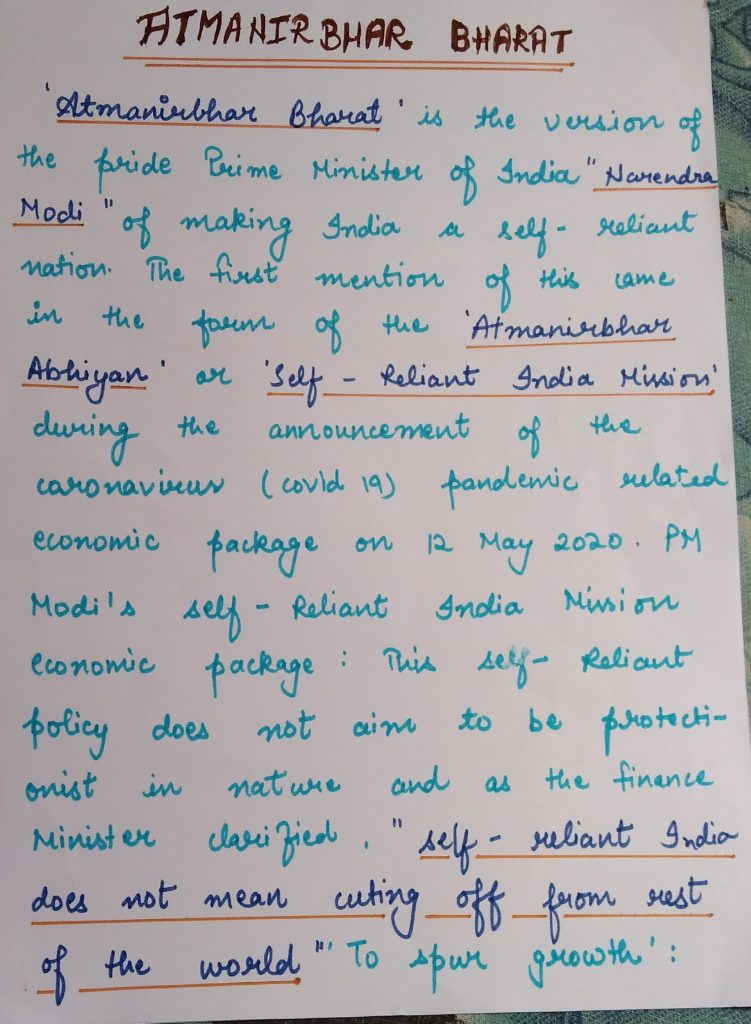 ATMANIRBHAR BHARAT
'Atmanirbhar Bharat' is the version of
the pride Prime Minister of India "Narendra
Modi" of making India a self-reliant
nation. The first mention of this came
in the form of the 'Atmanirbhar
Abhiyan' or 'Self-Reliant India Mission'
during the announcement of the
caronavirus (covid 19) pandemic related
economic package on 12 May 2020. PM
Modi's self-Reliant India Mission
economic package : This self-Reliant
policy does not aim to be protecti-
onist in nature and as the finance
Minister clarified, "self-reliant India
does not mean cuting off from rest
of the world" 'To spur growth' :